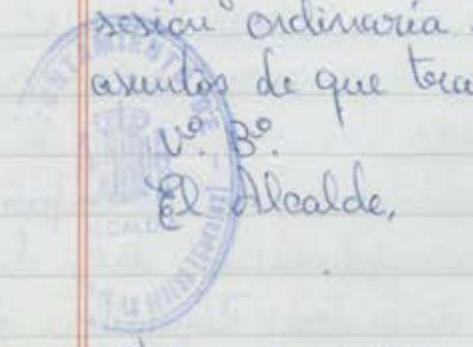 sesión ordinaria
asuntos de que
Vº. Bº.
El Alcalde,